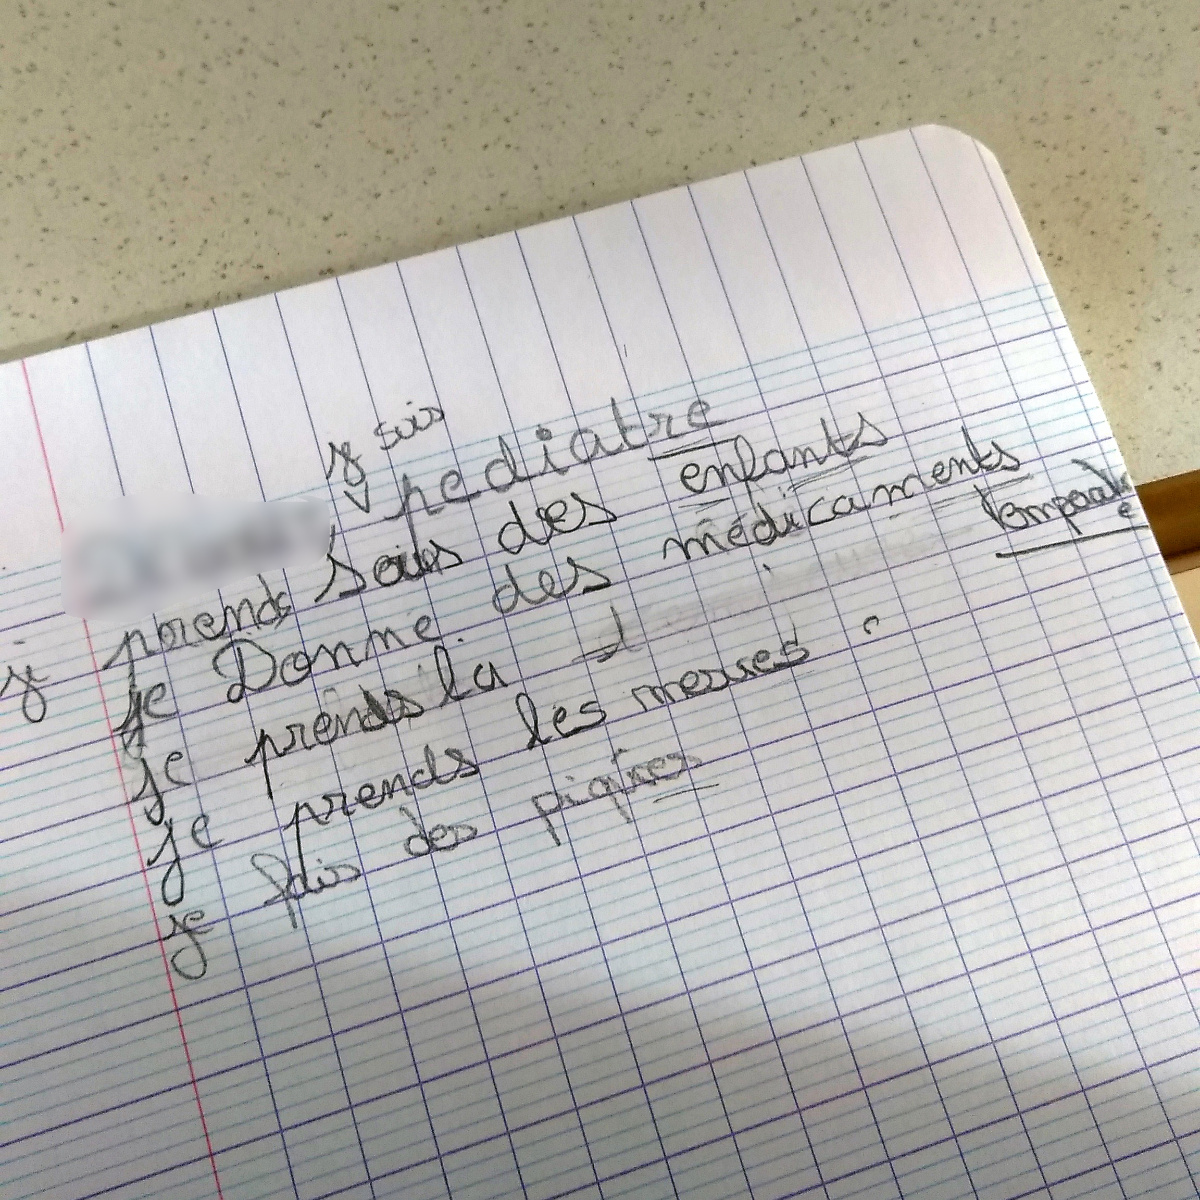 je suis
pediatre
je prends soins des enfants
je Donne des médicaments
je prends la
je prends les mesures
je fais des piqures